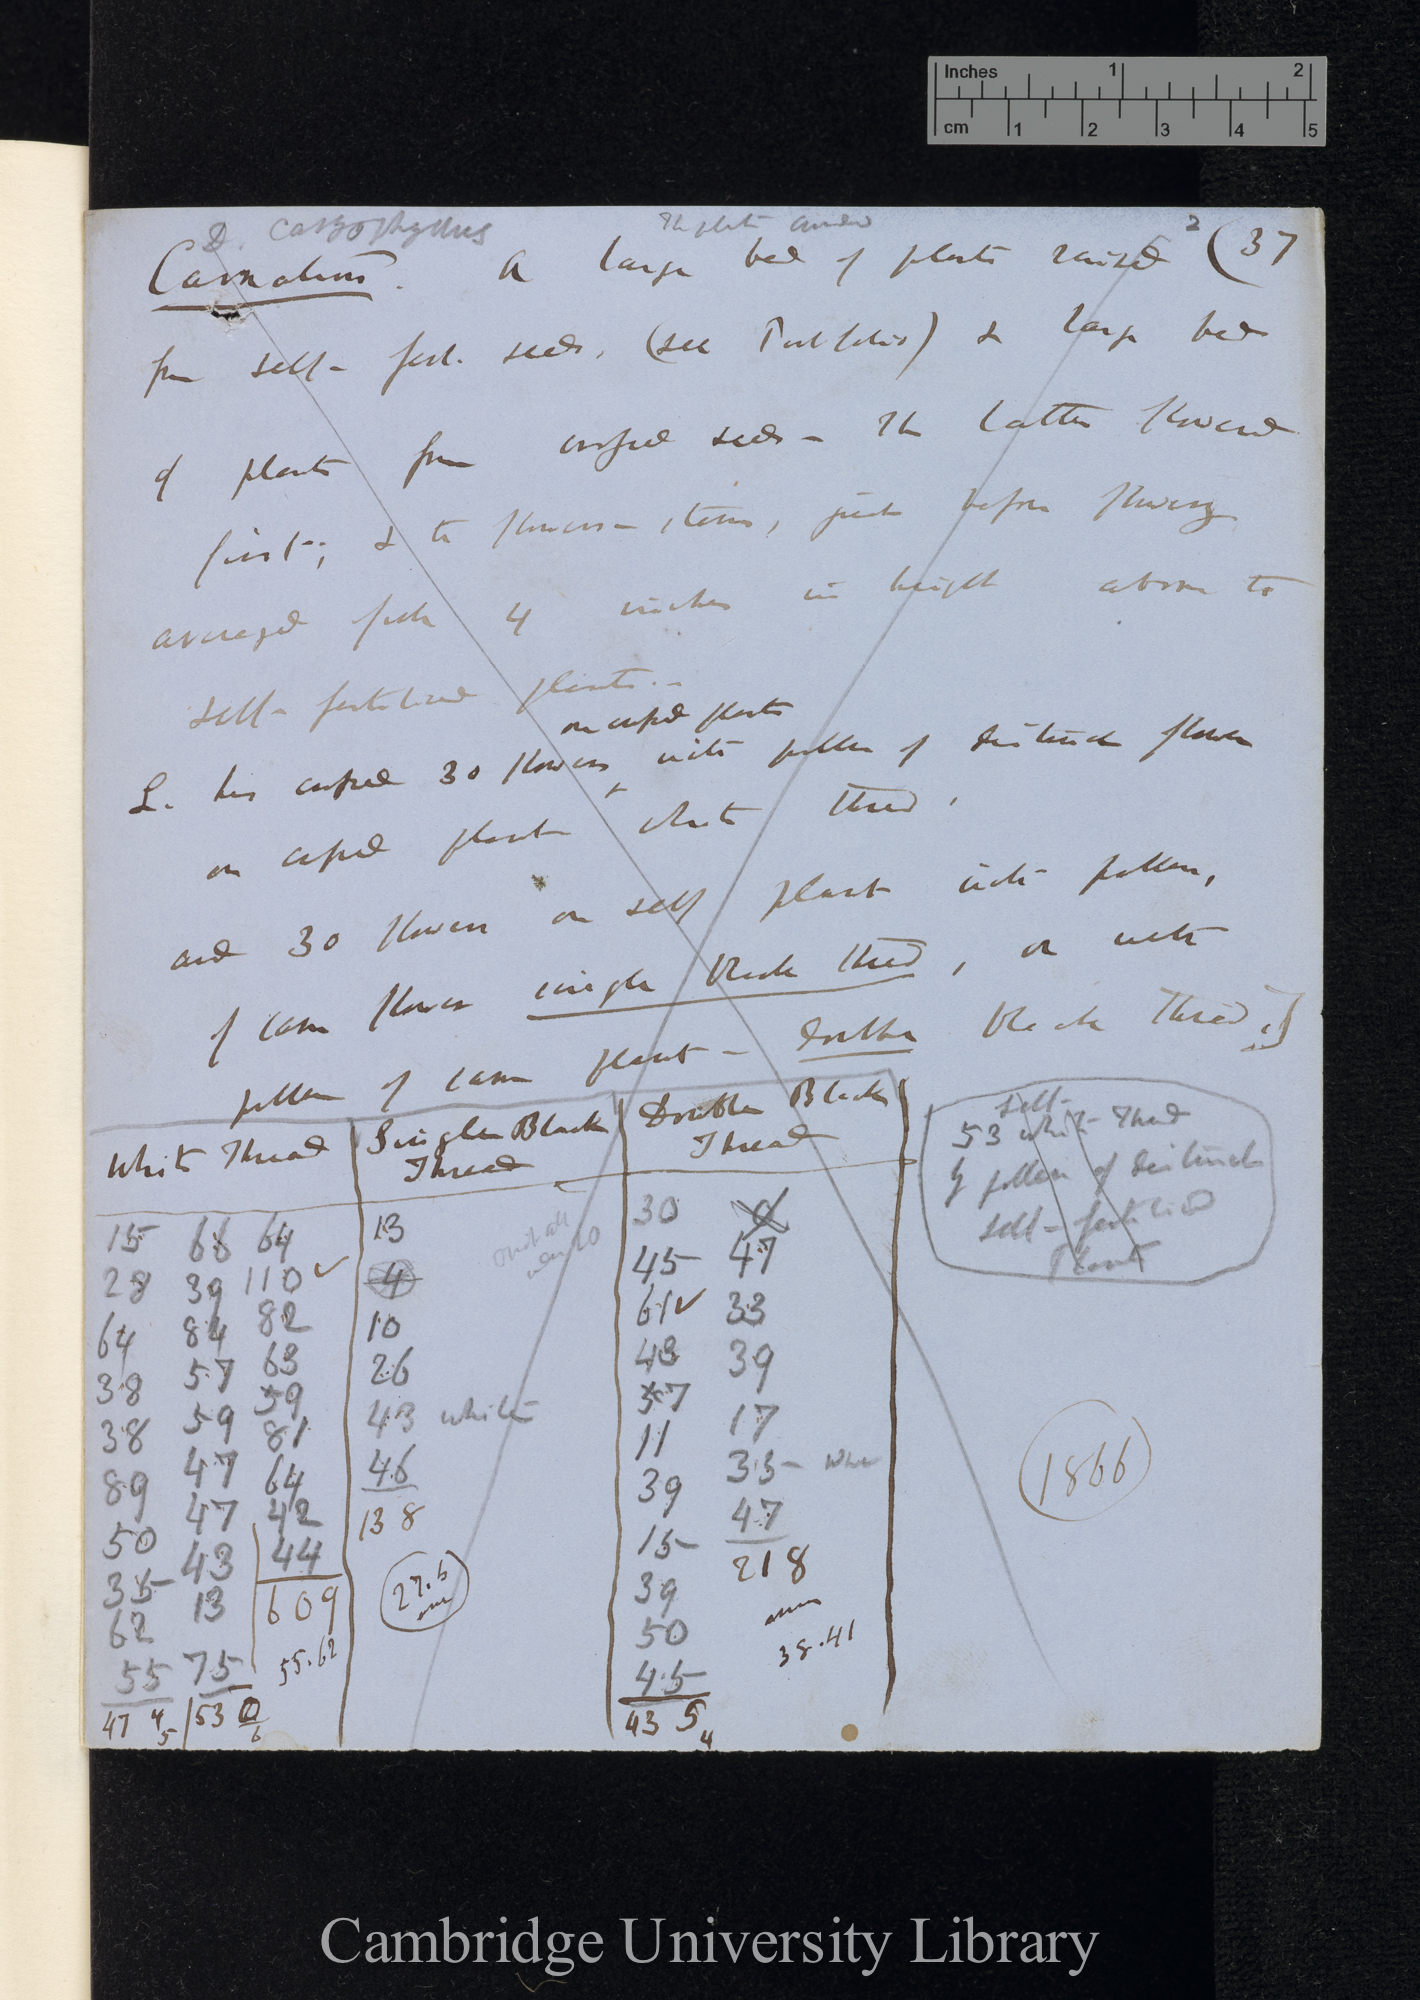 Inches 1 2
cm 1 2 3 4 5
D. Caryophyllus
2 (37
Carnations. A large bed of plants raised
from self-fert. seeds, (see Portfolio) & large bed
of plants from crossed seeds - The latter flowered
first-; & the flower-stems, just before flowering
averaged fully 4 inches in height above the
self-fertilised plants.-
on crossed plants
L. has crossed 30 flowers with pollen of distinct flower
on crossed plant white thread,
and 30 flowers on self plant with pollen,
of same flower single black thread, or with
pollen of same plant - double black thread.]
White Thread | Single Black Thread | Double Black Thread
15 66 64 | 13 | 30 0
28 39 110 ✓ | 4 | 45 47
64 84 82 | 10 | 61 ✓ 33
38 57 63 | 26 | 43 39
38 59 59 | 43 white | 57 17
89 47 81 | 46 | 11 33-
50 47 64 | 138 | 39 47
35 43 42 | 27.6 | 15 218
62 13 44 | 39
55 75 609 | 50 38.41
474 5 | 530 6 | 55.62 | 45
435 4
omit all
Self-
53 white Thread
by pollen of distinct
self-fertilised
Plant
1866
Cambridge University Library